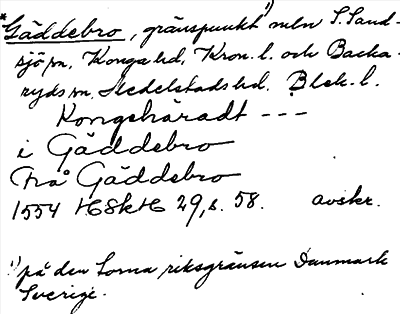 *Gäddebro, gränspunkt¹) mln S. Sand-
sjö sn, Konga hd, Kron. l. och Backa-
ryds sn, Medelstads hd, Blek. l.
Kongshäradt ---
i Gäddebro
Frå Gäddebro
1554 HSkH 29, s. 58. avskr.
¹) på den forna riksgränsen Danmark
Sverige.